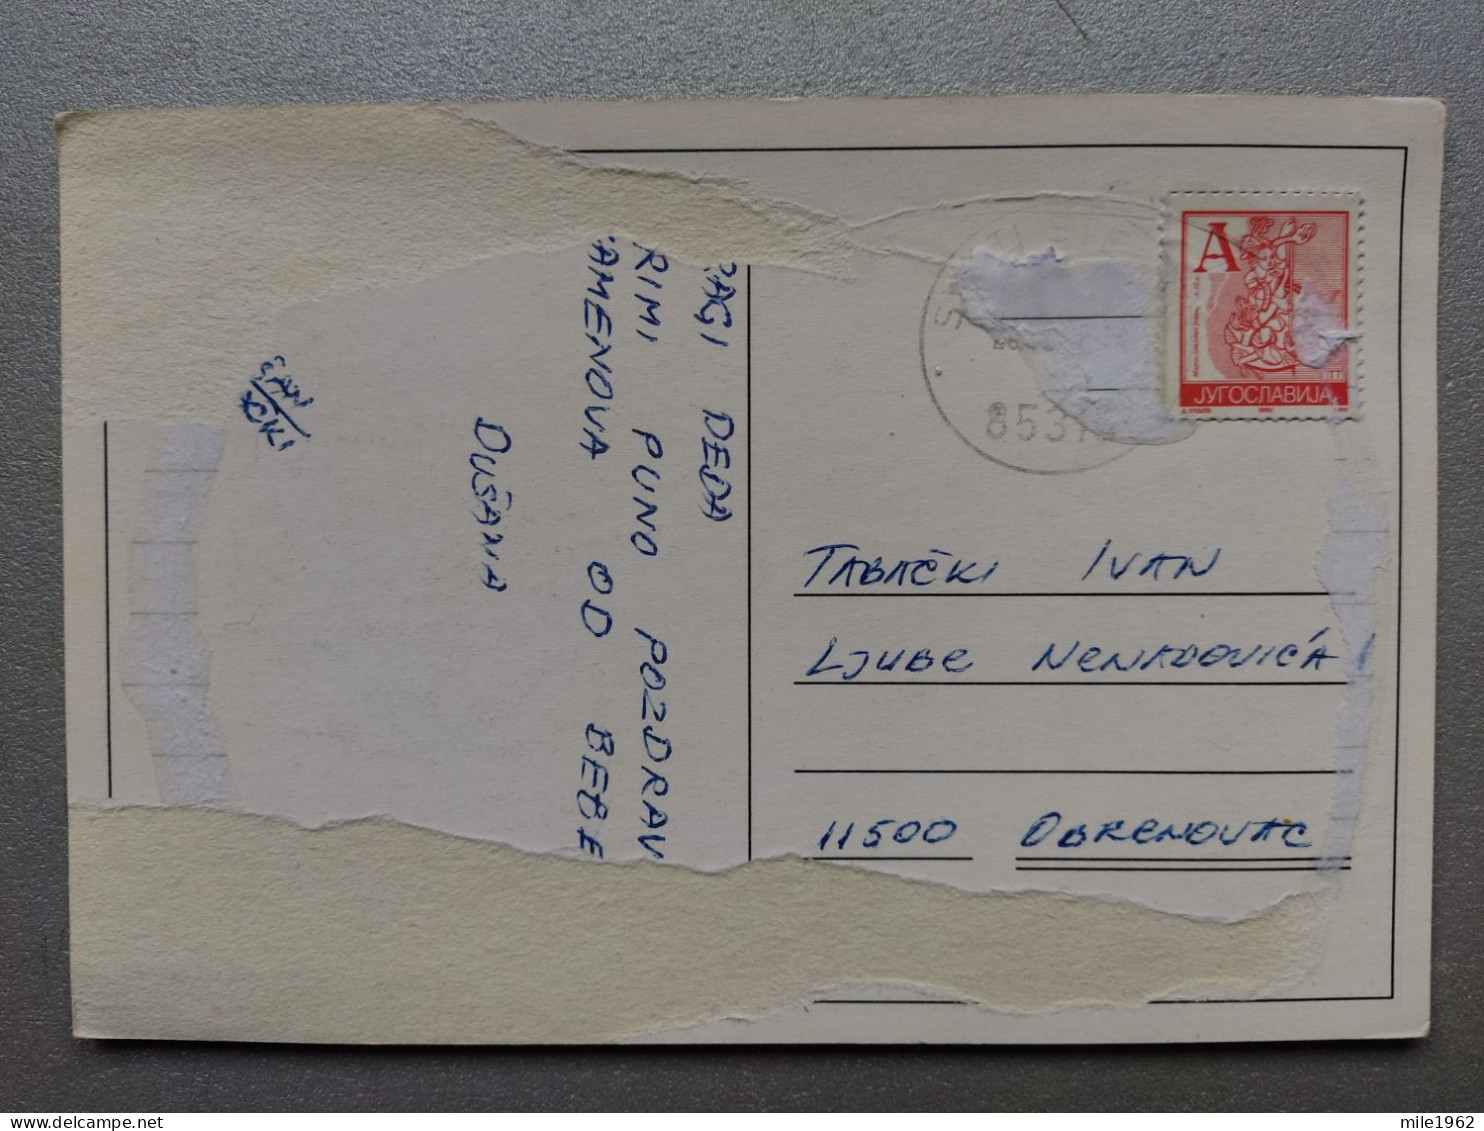 RAGI DEDA
RIMI PUNO POZDRAV
AMENOVA OD BEBE
DUŠANA
A
ЈУГОСЛАВИЈА
TABAČKI IVAN
LJUBE NENADOVIĆA
11500 OBRENOVAC
mile1962